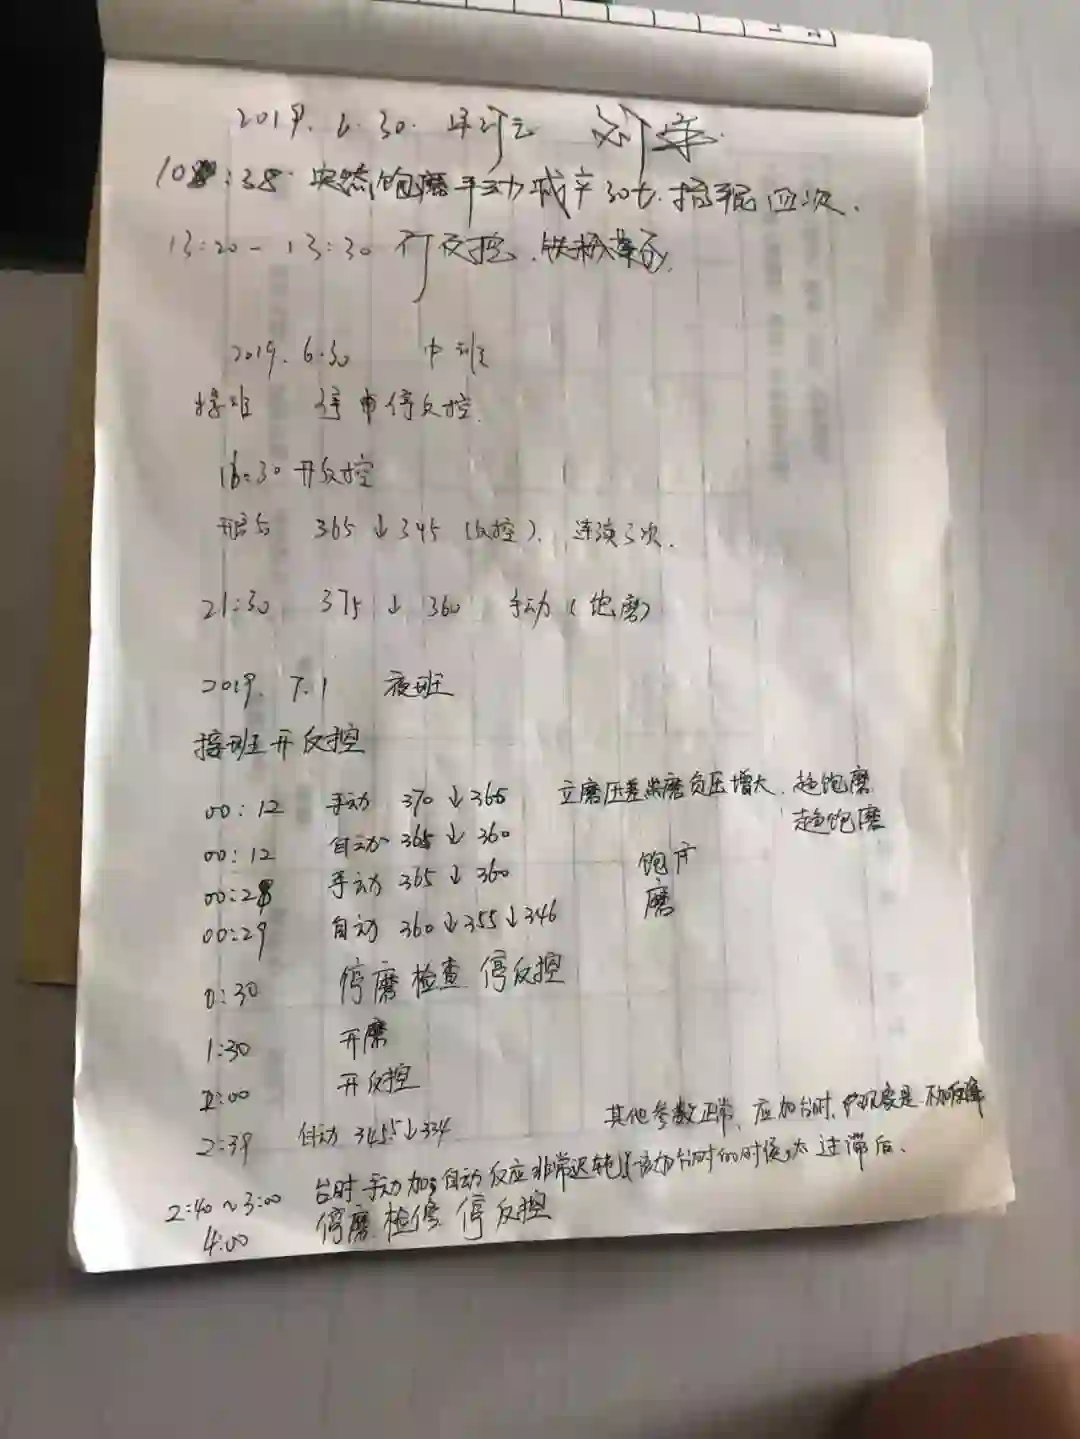 2019.6.30. 早班
10:38 突然饱磨手动减产30t. 抬辊四次.
13:20-13:30 反控.
2019.6.30 中班
接班 停反控.
16:30 开反控
365↓345 (反控). 连续3次.
21:30 375↓360 手动(饱磨)
2019.7.1 夜班
接班开反控
00:12 手动 370↓365 立磨压差 磨负压增大. 趋饱磨
趋饱磨
00:12 自动 365↓360
00:28 手动 365↓360 饱
磨
00:29 自动 360↓355↓346
0:30 停磨检查 停反控
1:30 开磨
2:00 开反控
2:39 自动 345.5↓334 其他参数正常, 应加台时,
2:40~3:00 台时手动加, 自动反应非常迟钝 该加台时的时候, 太过滞后.
4:00 停磨.检修 停反控